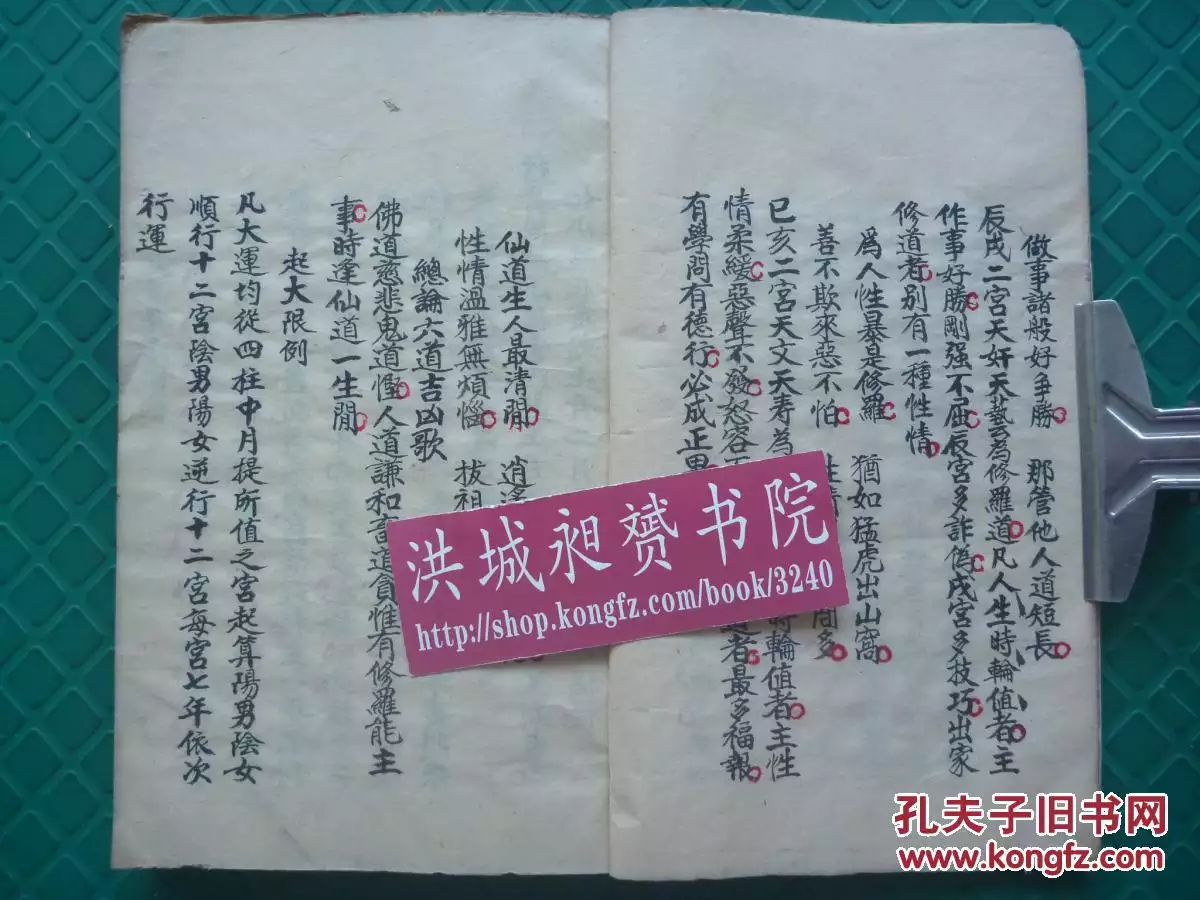 做事諸般好爭勝 那管他人道短長
辰戌二宮天奸天藝為修羅道凡人生時輪值者主
作事好勝剛强不屈辰宮多詐偽戌宮多技巧出家
修道者別有一種性情
為人性暴是修羅 猶如猛虎出山窩
善不欺來惡不怕 間多
巳亥二宮天文天寿為 時輪值者主性
情柔緩惡聲不發怒容 者最多福報
有學問有德行必成正
仙道生人最清閒 逍遙
性情溫雅無煩惱 拔祖
總論六道吉凶歌
佛道慈悲鬼道慳人道謙和畜道貪惟有修羅能主
事時逢仙道一生閒
起大限例
凡大運均從四柱中月提所值之宮起算陽男陰女
順行十二宮陰男陽女逆行十二宮每宮七年依次
行運
洪城昶赟书院
http://shop.kongfz.com/book/3240
孔夫子旧书网
www.kongfz.com